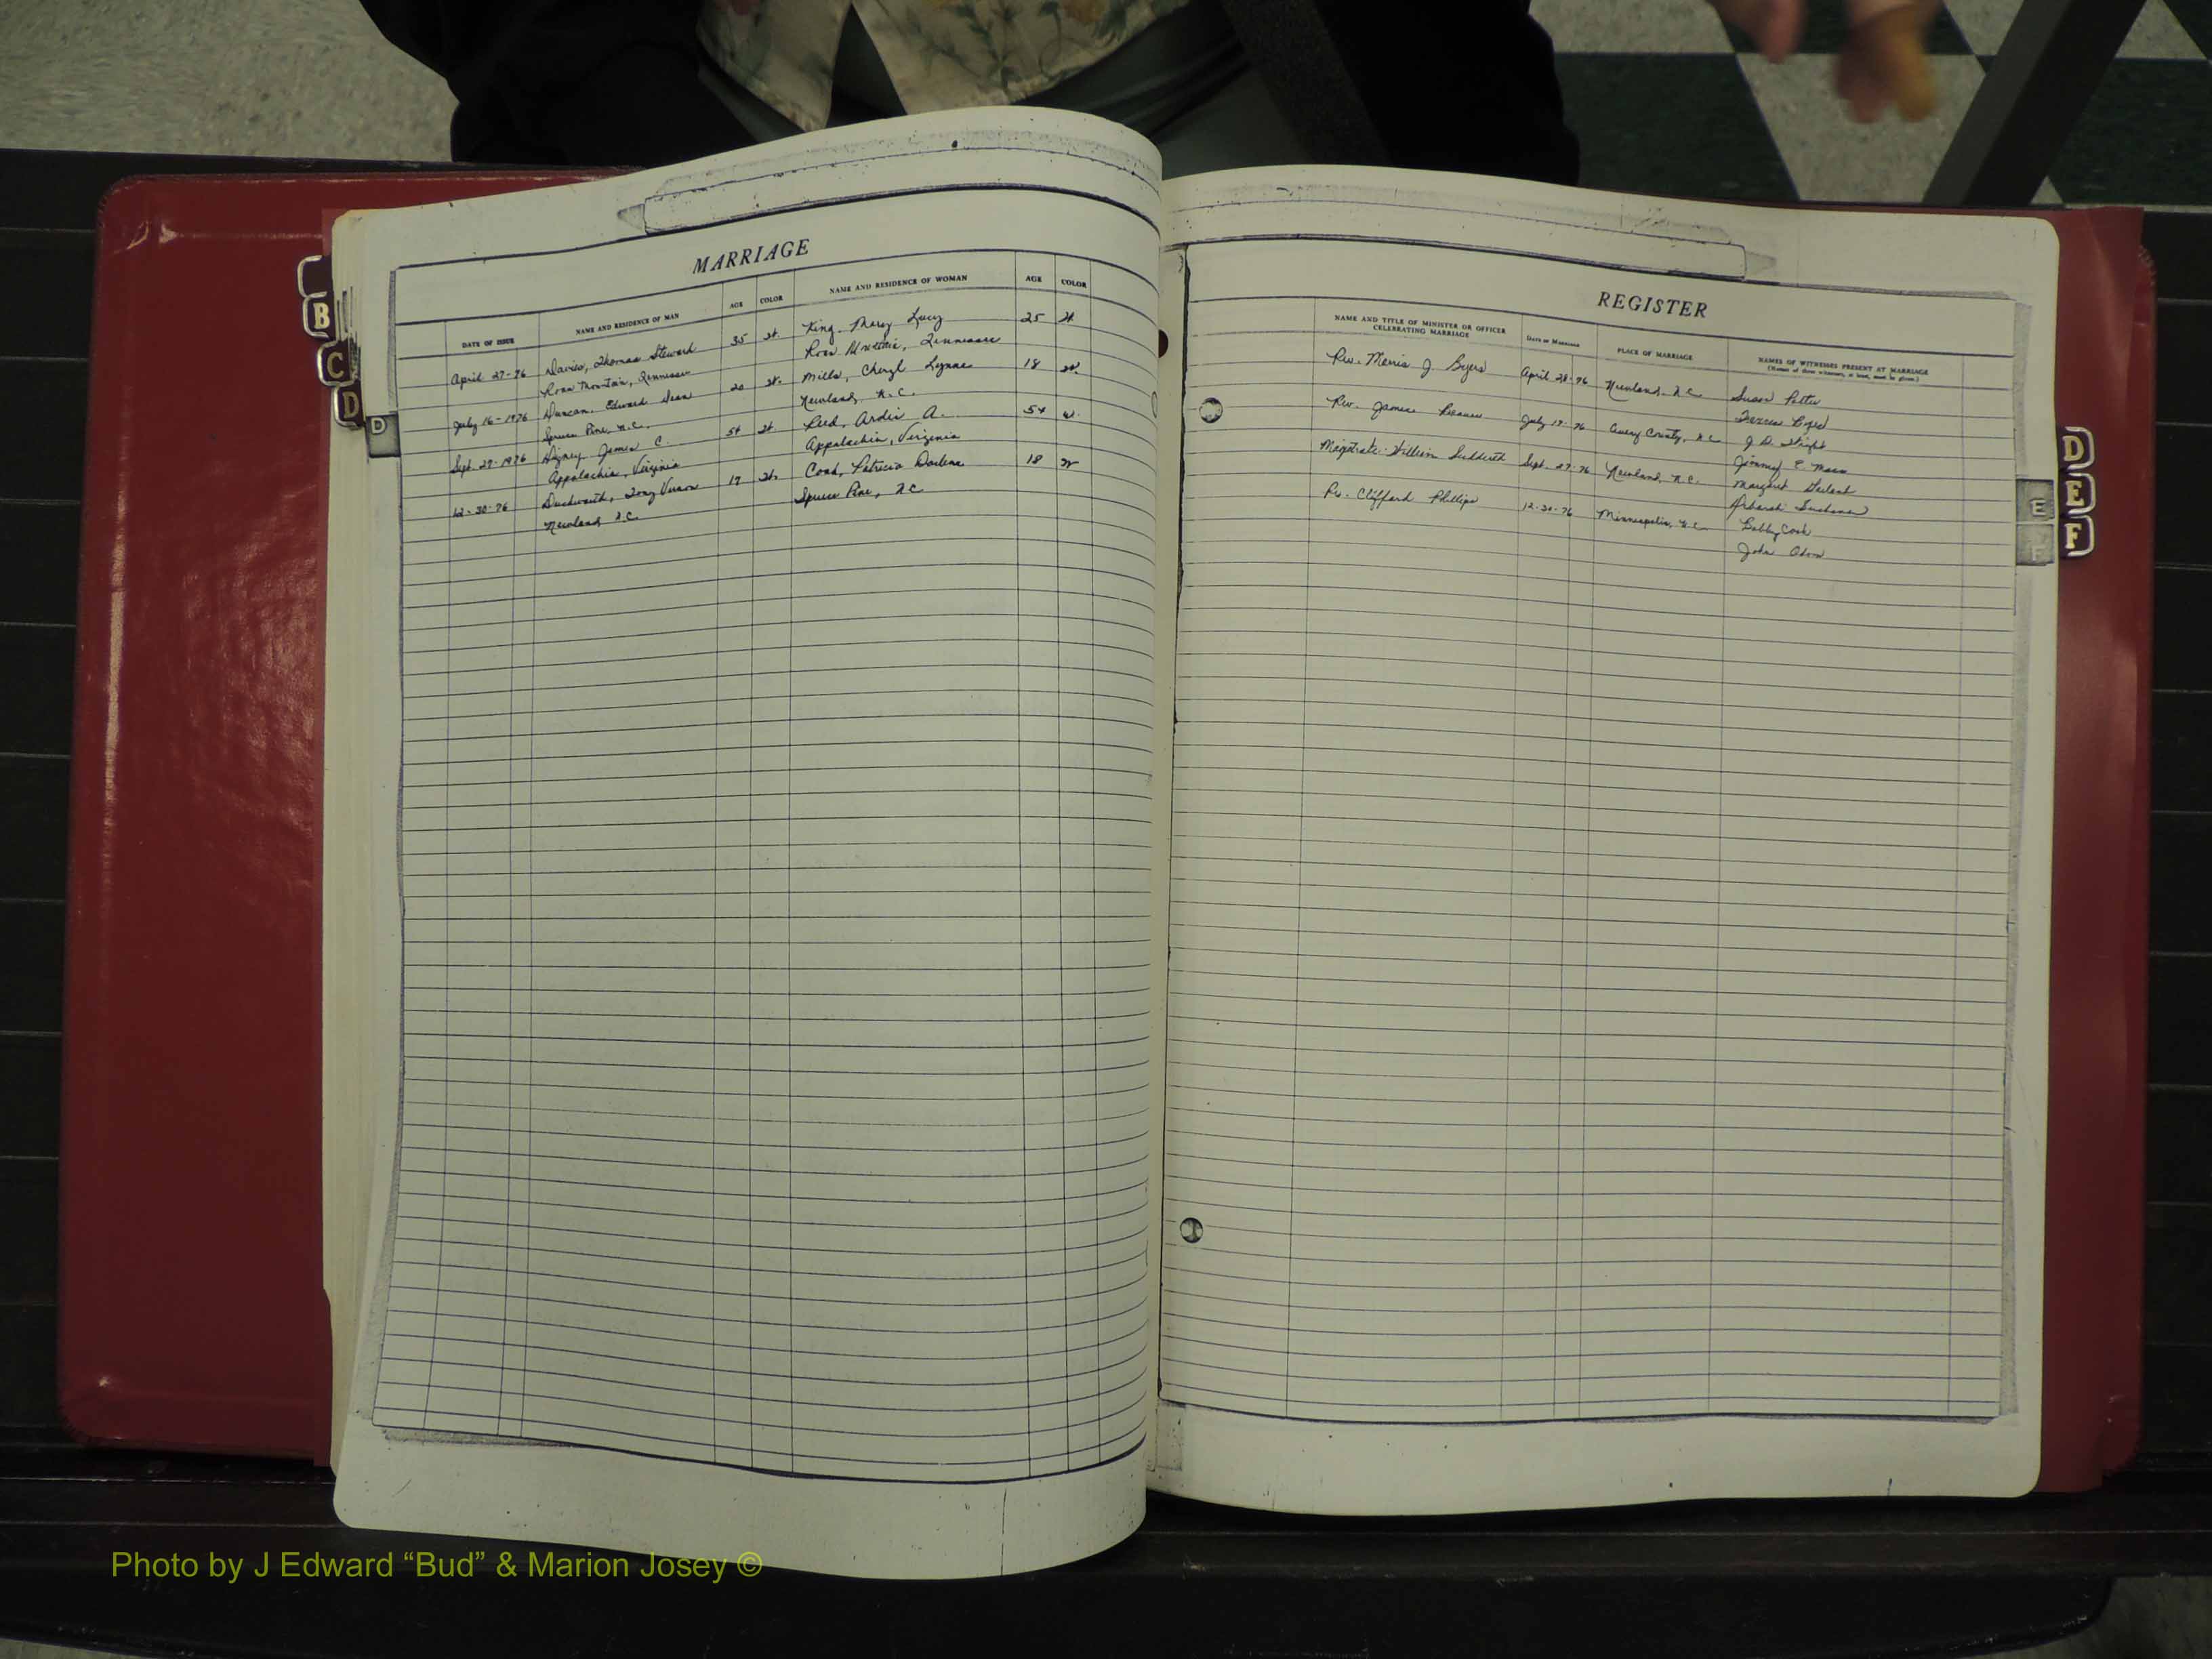 MARRIAGE
DATE OF ISSUE
NAME AND RESIDENCE OF MAN
AGE
COLOR
NAME AND RESIDENCE OF WOMAN
AGE
COLOR
April 27-76
Davis, Thomas Steward
35
W.
King, Marcy Lucy
25
W.
Roan Mountain, Tennessee
Roan Mountain, Tennessee
July 16-1976
Duncan, Edward Dean
20
W.
Mills, Cheryl Lynne
18
W.
Spruce Pine, N.C.
Newland, N.C.
Sept. 27-1976
James C.
54
W.
Reed, Ardis A.
54
W.
Appalachia, Virginia
Appalachia, Virginia
12-30-76
Duckworth, Tony Vernon
19
W.
Cook, Patricia Darlene
18
W
Newland, N.C.
Spruce Pine, N.C.
REGISTER
NAME AND TITLE OF MINISTER OR OFFICER
CELEBRATING MARRIAGE
DATE OF MARRIAGE
PLACE OF MARRIAGE
NAMES OF WITNESSES PRESENT AT MARRIAGE
(Names of three witnesses, at least, must be given.)
Rev. Morris J Byers
April 28-76
Newland, N.C.
Susan Potter
Rev. James
July 17-76
Avery County, N.C.
J. D. Wright
Jimmy E.
Magistrate William Sudderth
Sept. 27-76
Newland, N.C.
Margaret Garland
Buchanan
Rv. Clifford Phillips
12-30-76
Minneapolis, N.C.
Bobby Cook
John
B
C
D
D
D
E
F
E
F
Photo by J Edward “Bud” & Marion Josey ©